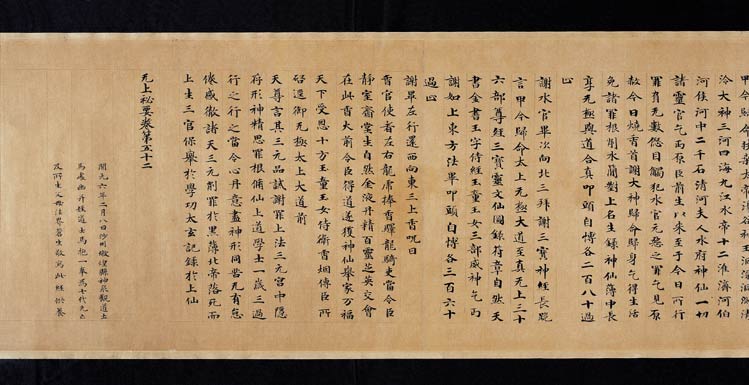 泠大神三河四海九江水帝十二淮濟河伯
河侯河中二千石清河夫人水府神仙一切
諸靈官乞丐原臣前生以來至于今日所行
罪負无數 目觸犯水官元惡之罪乞見原
赦今日燒香首謝大神歸命歸身乞得生活
免諸罪根削水簡對上名生録神仙簿中長
享元極與道合真叩頭自愽各二百八十過
止
謝水官畢次向北三拜謝三寶神經長跪
言甲今歸命太上无極大道至真无上三十
六部尊經三寶靈文仙圖録符章自然天
書金書玉字侍經玉童玉女三部威神乞丐
謝如上東方法畢叩頭自愽各三百六十
過止
謝畢左行還西向東三上香呪曰
香官使者左右龍席捧香驛龍騎吏當令臣
靜室齋堂生自然金液丹精百靈芝英交會
在此香火前令臣得道遂獲神仙舉家万福
天下受恩十方玉童玉女侍衛香烟傳臣所
啓還御无極太上大道前
天尊言其三元品試謝罪上法三元宮中隱
存形神精思罪根俻仙上道學士一歲三過
行之行之當令心丹意盡神形同苦无有怠
倦感徹諸天三元削罪於黑薄北帝落死而
上生三官保舉於學功太玄記録於上仙
无上祕要卷第五十二
開元六年二月八日沙州燉煌縣神泉觀道士
馬處幽并姪道士馬抱一奉為七代先亡
及所生父母法界蒼生敬寫此經供養